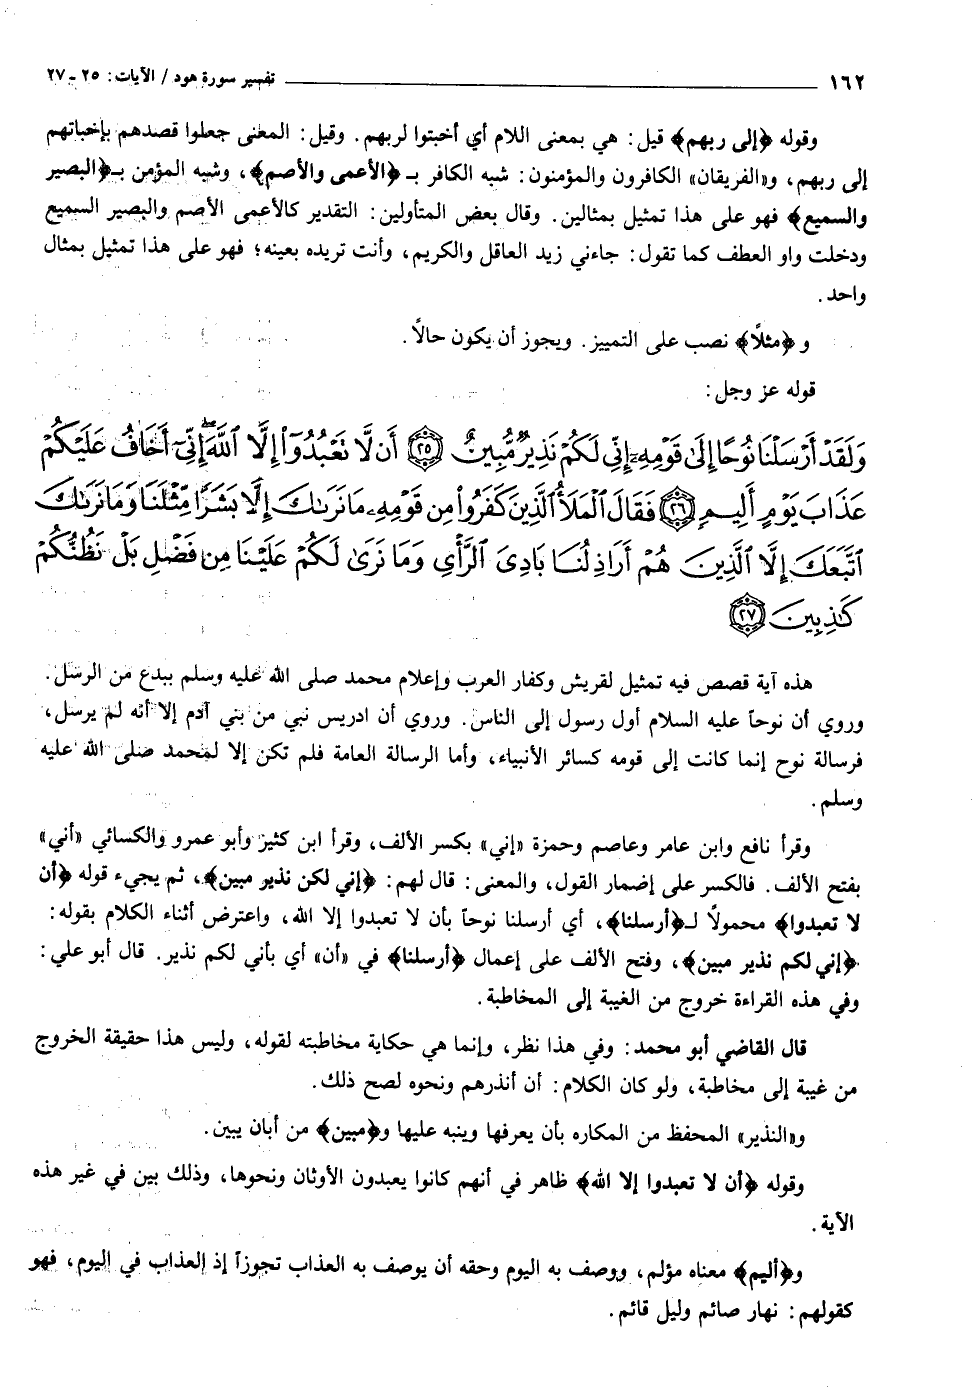 ١٦٢ ــــــــــــــــــــ تفسير سورة هود / الآيات: ٢٥ ـ ٢٧
وقوله ﴿إلى ربهم﴾ قيل: هي بمعنى اللام أي أخبتوا لربهم. وقيل: المعنى جعلوا قصدهم بإخباتهم
إلى ربهم، و«الفريقان» الكافرون والمؤمنون: شبه الكافر بـ ﴿الأعمى والأصم﴾، وشبه المؤمن بـ﴿البصير
والسميع﴾ فهو على هذا تمثيل بمثالين. وقال بعض المتأولين: التقدير كالأعمى الأصم والبصير السميع
ودخلت واو العطف كما تقول: جاءني زيد العاقل والكريم، وأنت تريده بعينه؛ فهو على هذا تمثيل بمثال
واحد.
و ﴿مثلاً﴾ نصب على التمييز. ويجوز أن يكون حالاً.
قوله عز وجل:
وَلَقَدْ أَرْسَلْنَا نُوحًا إِلَىٰ قَوْمِهِۦٓ إِنِّى لَكُمْ نَذِيرٌ مُّبِينٌ ﴿٢٥﴾ أَن لَّا تَعْبُدُوٓا۟ إِلَّا ٱللَّهَ ۖ إِنِّىٓ أَخَافُ عَلَيْكُمْ
عَذَابَ يَوْمٍ أَلِيمٍ ﴿٢٦﴾ فَقَالَ ٱلْمَلَأُ ٱلَّذِينَ كَفَرُوا۟ مِن قَوْمِهِۦ مَا نَرَىٰكَ إِلَّا بَشَرًا مِّثْلَنَا وَمَا نَرَىٰكَ
ٱتَّبَعَكَ إِلَّا ٱلَّذِينَ هُمْ أَرَاذِلُنَا بَادِىَ ٱلرَّأْىِ وَمَا نَرَىٰ لَكُمْ عَلَيْنَا مِن فَضْلٍۭ بَلْ نَظُنُّكُمْ
كَـٰذِبِينَ ﴿٢٧﴾
هذه آية قصص فيه تمثيل لقريش وكفار العرب وإعلام محمد صلى الله عليه وسلم ببدع من الرسل.
وروي أن نوحاً عليه السلام أول رسول إلى الناس. وروي أن ادريس نبي من بني آدم إلا أنه لم يرسل،
فرسالة نوح إنما كانت إلى قومه كسائر الأنبياء، وأما الرسالة العامة فلم تكن إلا لمحمد صلى الله عليه
وسلم.
وقرأ نافع وابن عامر وعاصم وحمزة «إني» بكسر الألف، وقرأ ابن كثير وأبو عمرو والكسائي «أني»
بفتح الألف. فالكسر على إضمار القول، والمعنى: قال لهم: ﴿إني لكن نذير مبين﴾، ثم يجيء قوله ﴿أن
لا تعبدوا﴾ محمولاً لـ﴿أرسلنا﴾، أي أرسلنا نوحاً بأن لا تعبدوا إلا الله، واعترض أثناء الكلام بقوله:
﴿إني لكم نذير مبين﴾، وفتح الألف على إعمال ﴿أرسلنا﴾ في «أن» أي بأني لكم نذير. قال أبو علي:
وفي هذه القراءة خروج من الغيبة إلى المخاطبة.
قال القاضي أبو محمد: وفي هذا نظر، وإنما هي حكاية مخاطبته لقوله، وليس هذا حقيقة الخروج
من غيبة إلى مخاطبة، ولو كان الكلام: أن أنذرهم ونحوه لصح ذلك.
و«النذير» المحفظ من المكاره بأن يعرفها وينبه عليها و﴿مبين﴾ من أبان يبين.
وقوله ﴿أن لا تعبدوا إلا الله﴾ ظاهر في أنهم كانوا يعبدون الأوثان ونحوها، وذلك بين في غير هذه
الآية.
و﴿أليم﴾ معناه مؤلم، ووصف به اليوم وحقه أن يوصف به العذاب تجوزاً إذ العذاب في اليوم، فهو
كقولهم: نهار صائم وليل قائم.